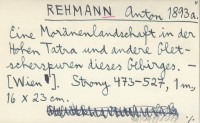 REHMANN, Anton, 1893a.
Eine Moränenlandschaft in der
Hohen Tatra und andere Glet-
scherspuren dieses Gebirges. —
[Wien]. Strony 473-527, 1 m,
16 x 23 cm.